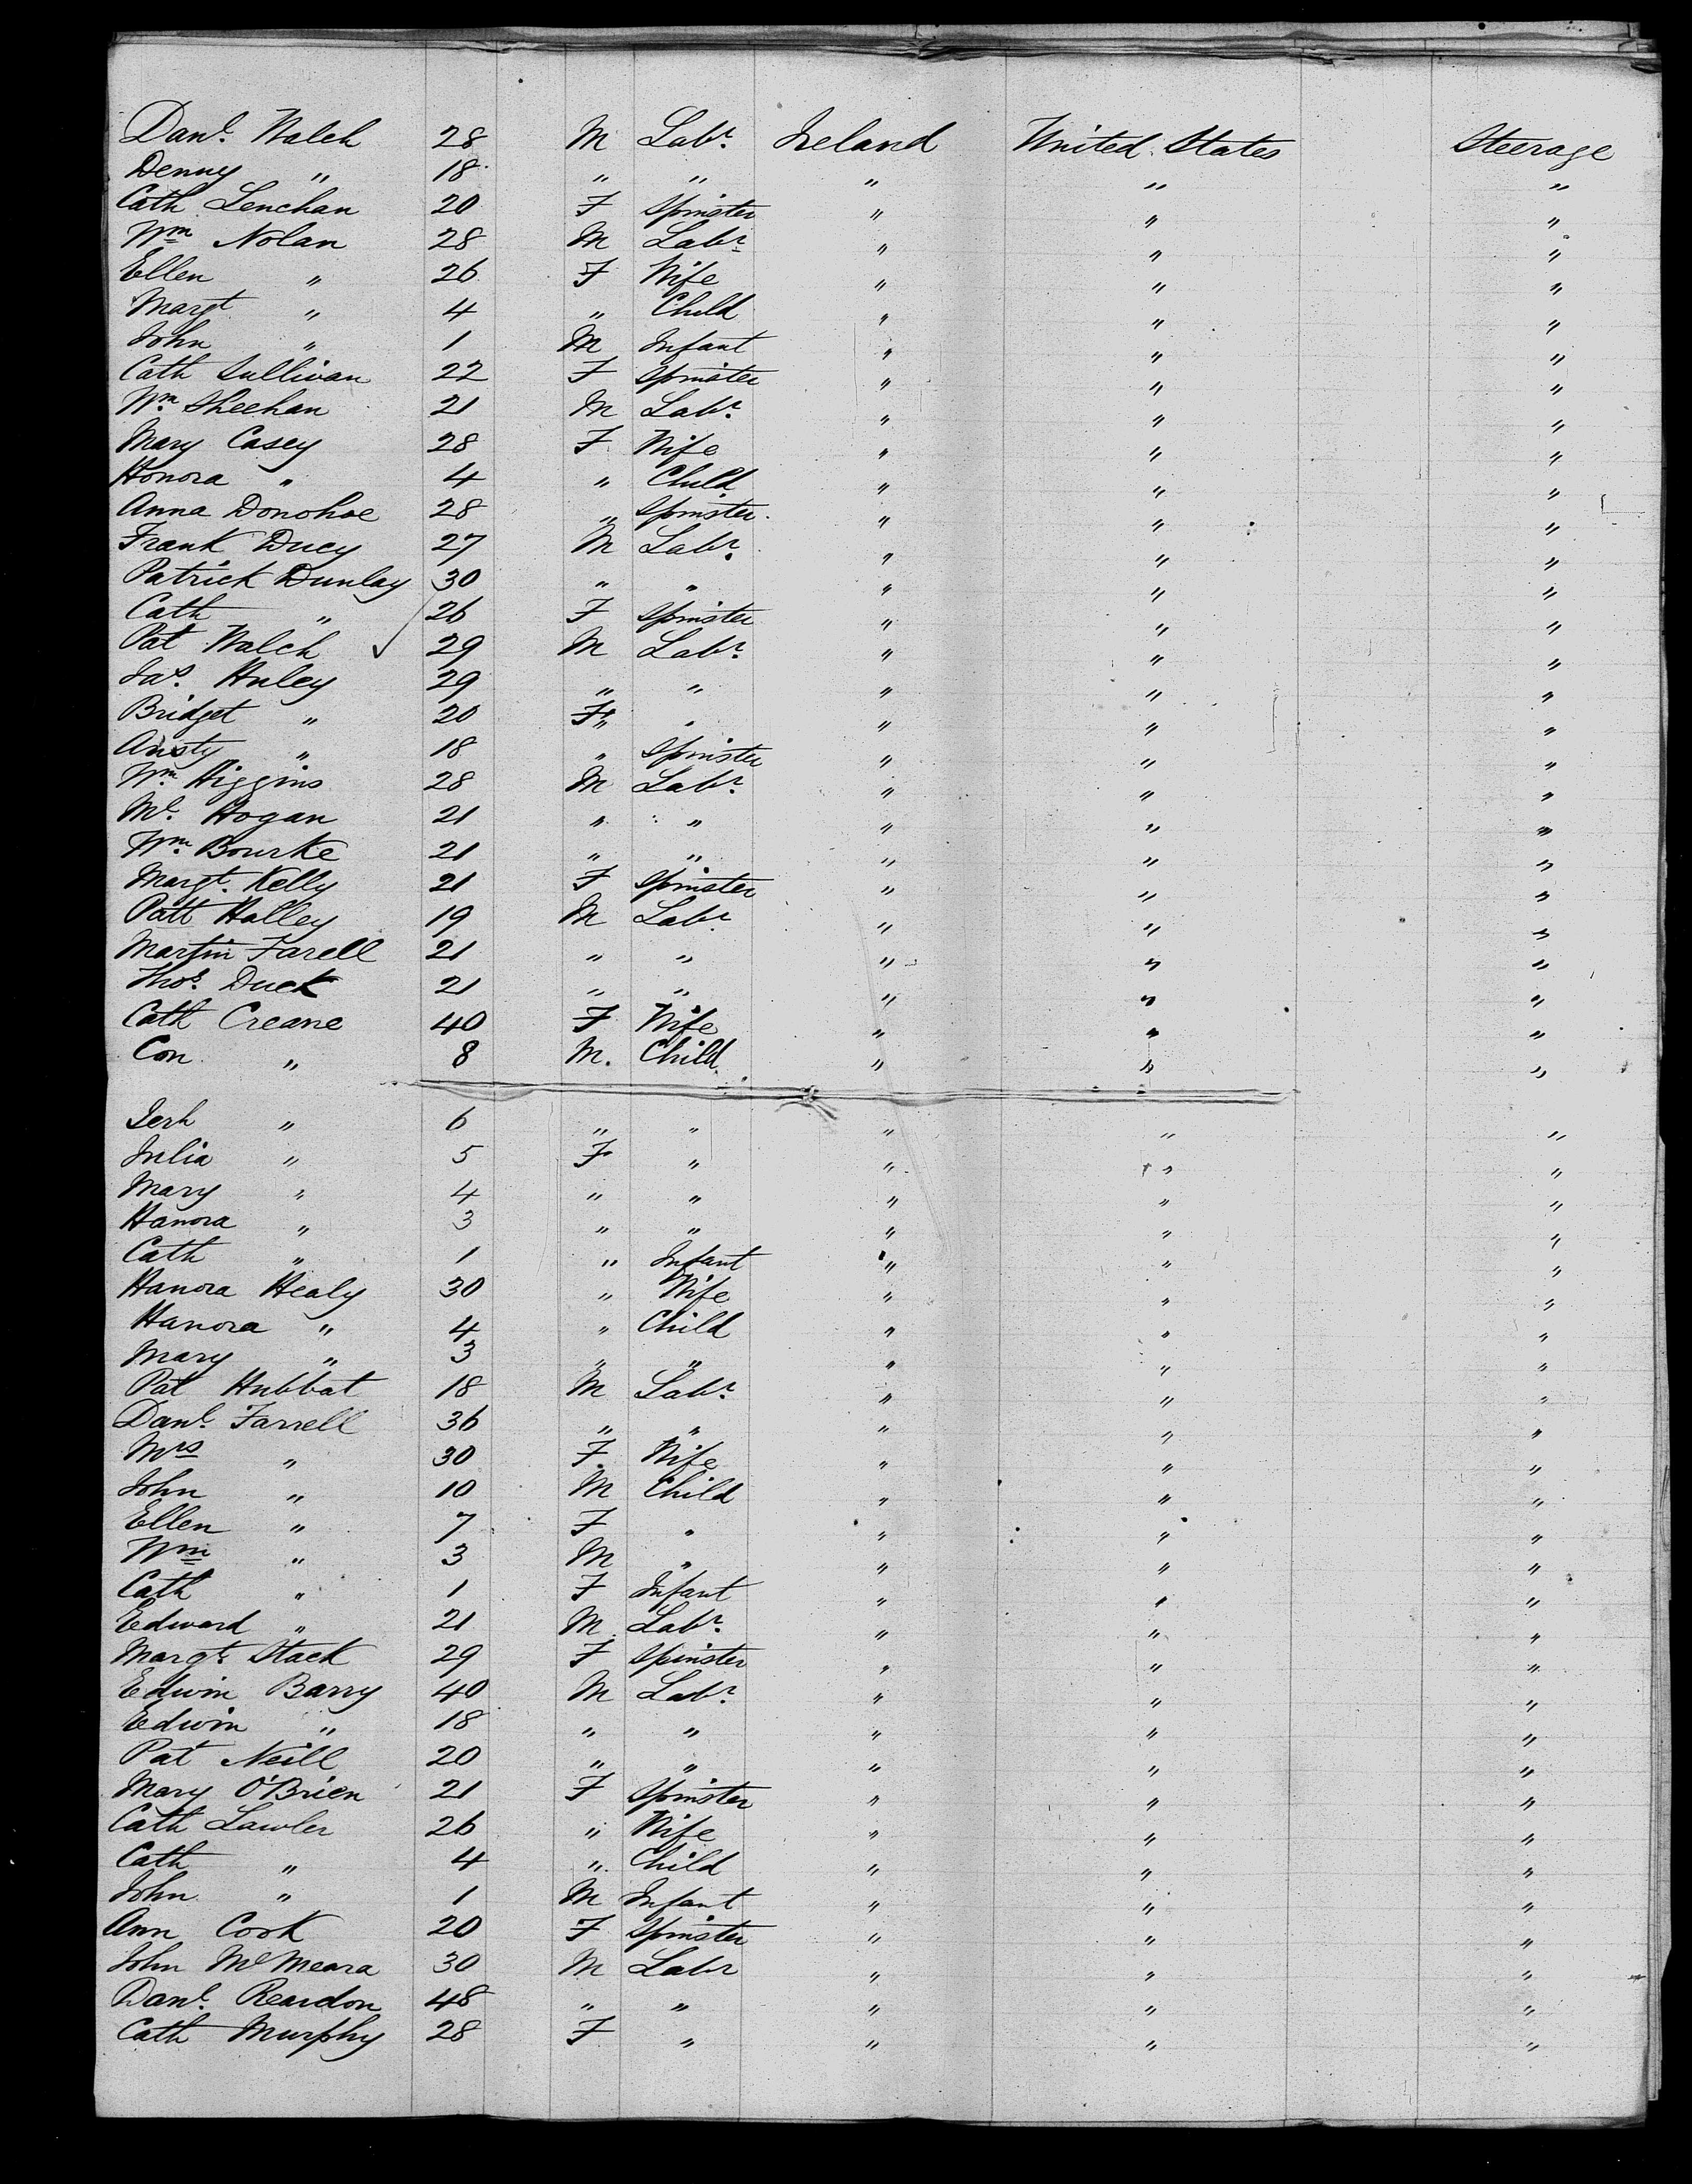 Danl. Walch 28 M Labr. Ireland United States Steerage
Denny " 18 " " " " "
Cath Lenehan 20 F Spinster " " "
Wm Nolan 28 M Labr " " "
Ellen " 26 F Wife " " "
Margt " 4 " Child " " "
John " 1 M Infant " " "
Cath Sullivan 22 F Spinster " " "
Wm. Sheehan 21 M Labr. " " "
Mary Casey 28 F Wife " " "
Honora " 4 " Child " " "
Anna Donohoe 28 " Spinster " " "
Frank Ducy 27 M Labr. " " "
Patrick Dunlay 30 " " " " "
Cath " 26 F Spinster " " "
Pat Walch ✓ 29 M Labr. " " "
Jas. Huley 29 " " " " "
Bridget " 20 F " " " "
Ansty " 18 " Spinster " " "
Wm. Higgins 28 M Labr. " " "
Ml. Hogan 21 " " " " "
Wm. Bourke 21 " " " " "
Margt. Kelly 21 F Spinster " " "
Patt Halley 19 M Labr. " " "
Martin Farell 21 " " " " "
Thos. Duck 21 " " " " "
Cath Creane 40 F Wife " " "
Con " 8 M. Child " " "
Jerh " 6 " " " " "
Julia " 5 F " " " "
Mary " 4 " " " " "
Hanora " 3 " " " " "
Cath " 1 " Infant " " "
Hanora Healy 30 " Wife " " "
Hanora " 4 " Child " " "
Mary " 3 " " " " "
Pat Hubbat 18 M Labr. " " "
Danl. Farrell 36 " " " " "
Mrs " 30 F. Wife " " "
John " 10 M Child " " "
Ellen " 7 F " " " "
Wm " 3 M " " " "
Cath " 1 F Infant " " "
Edward " 21 M Labr. " " "
Margt. Stack 29 F Spinster " " "
Edwin Barry 40 M Labr. " " "
Edwin " 18 " " " " "
Pat Neill 20 " " " " "
Mary O'Brien 21 F Spinster " " "
Cath Lawler 26 " Wife " " "
Cath " 4 " Child " " "
John " 1 M Infant " " "
Ann Cook 20 F Spinster " " "
John Mc Meara 30 M Labr " " "
Danl. Reardon 48 " " " " "
Cath Murphy 28 F " " " "